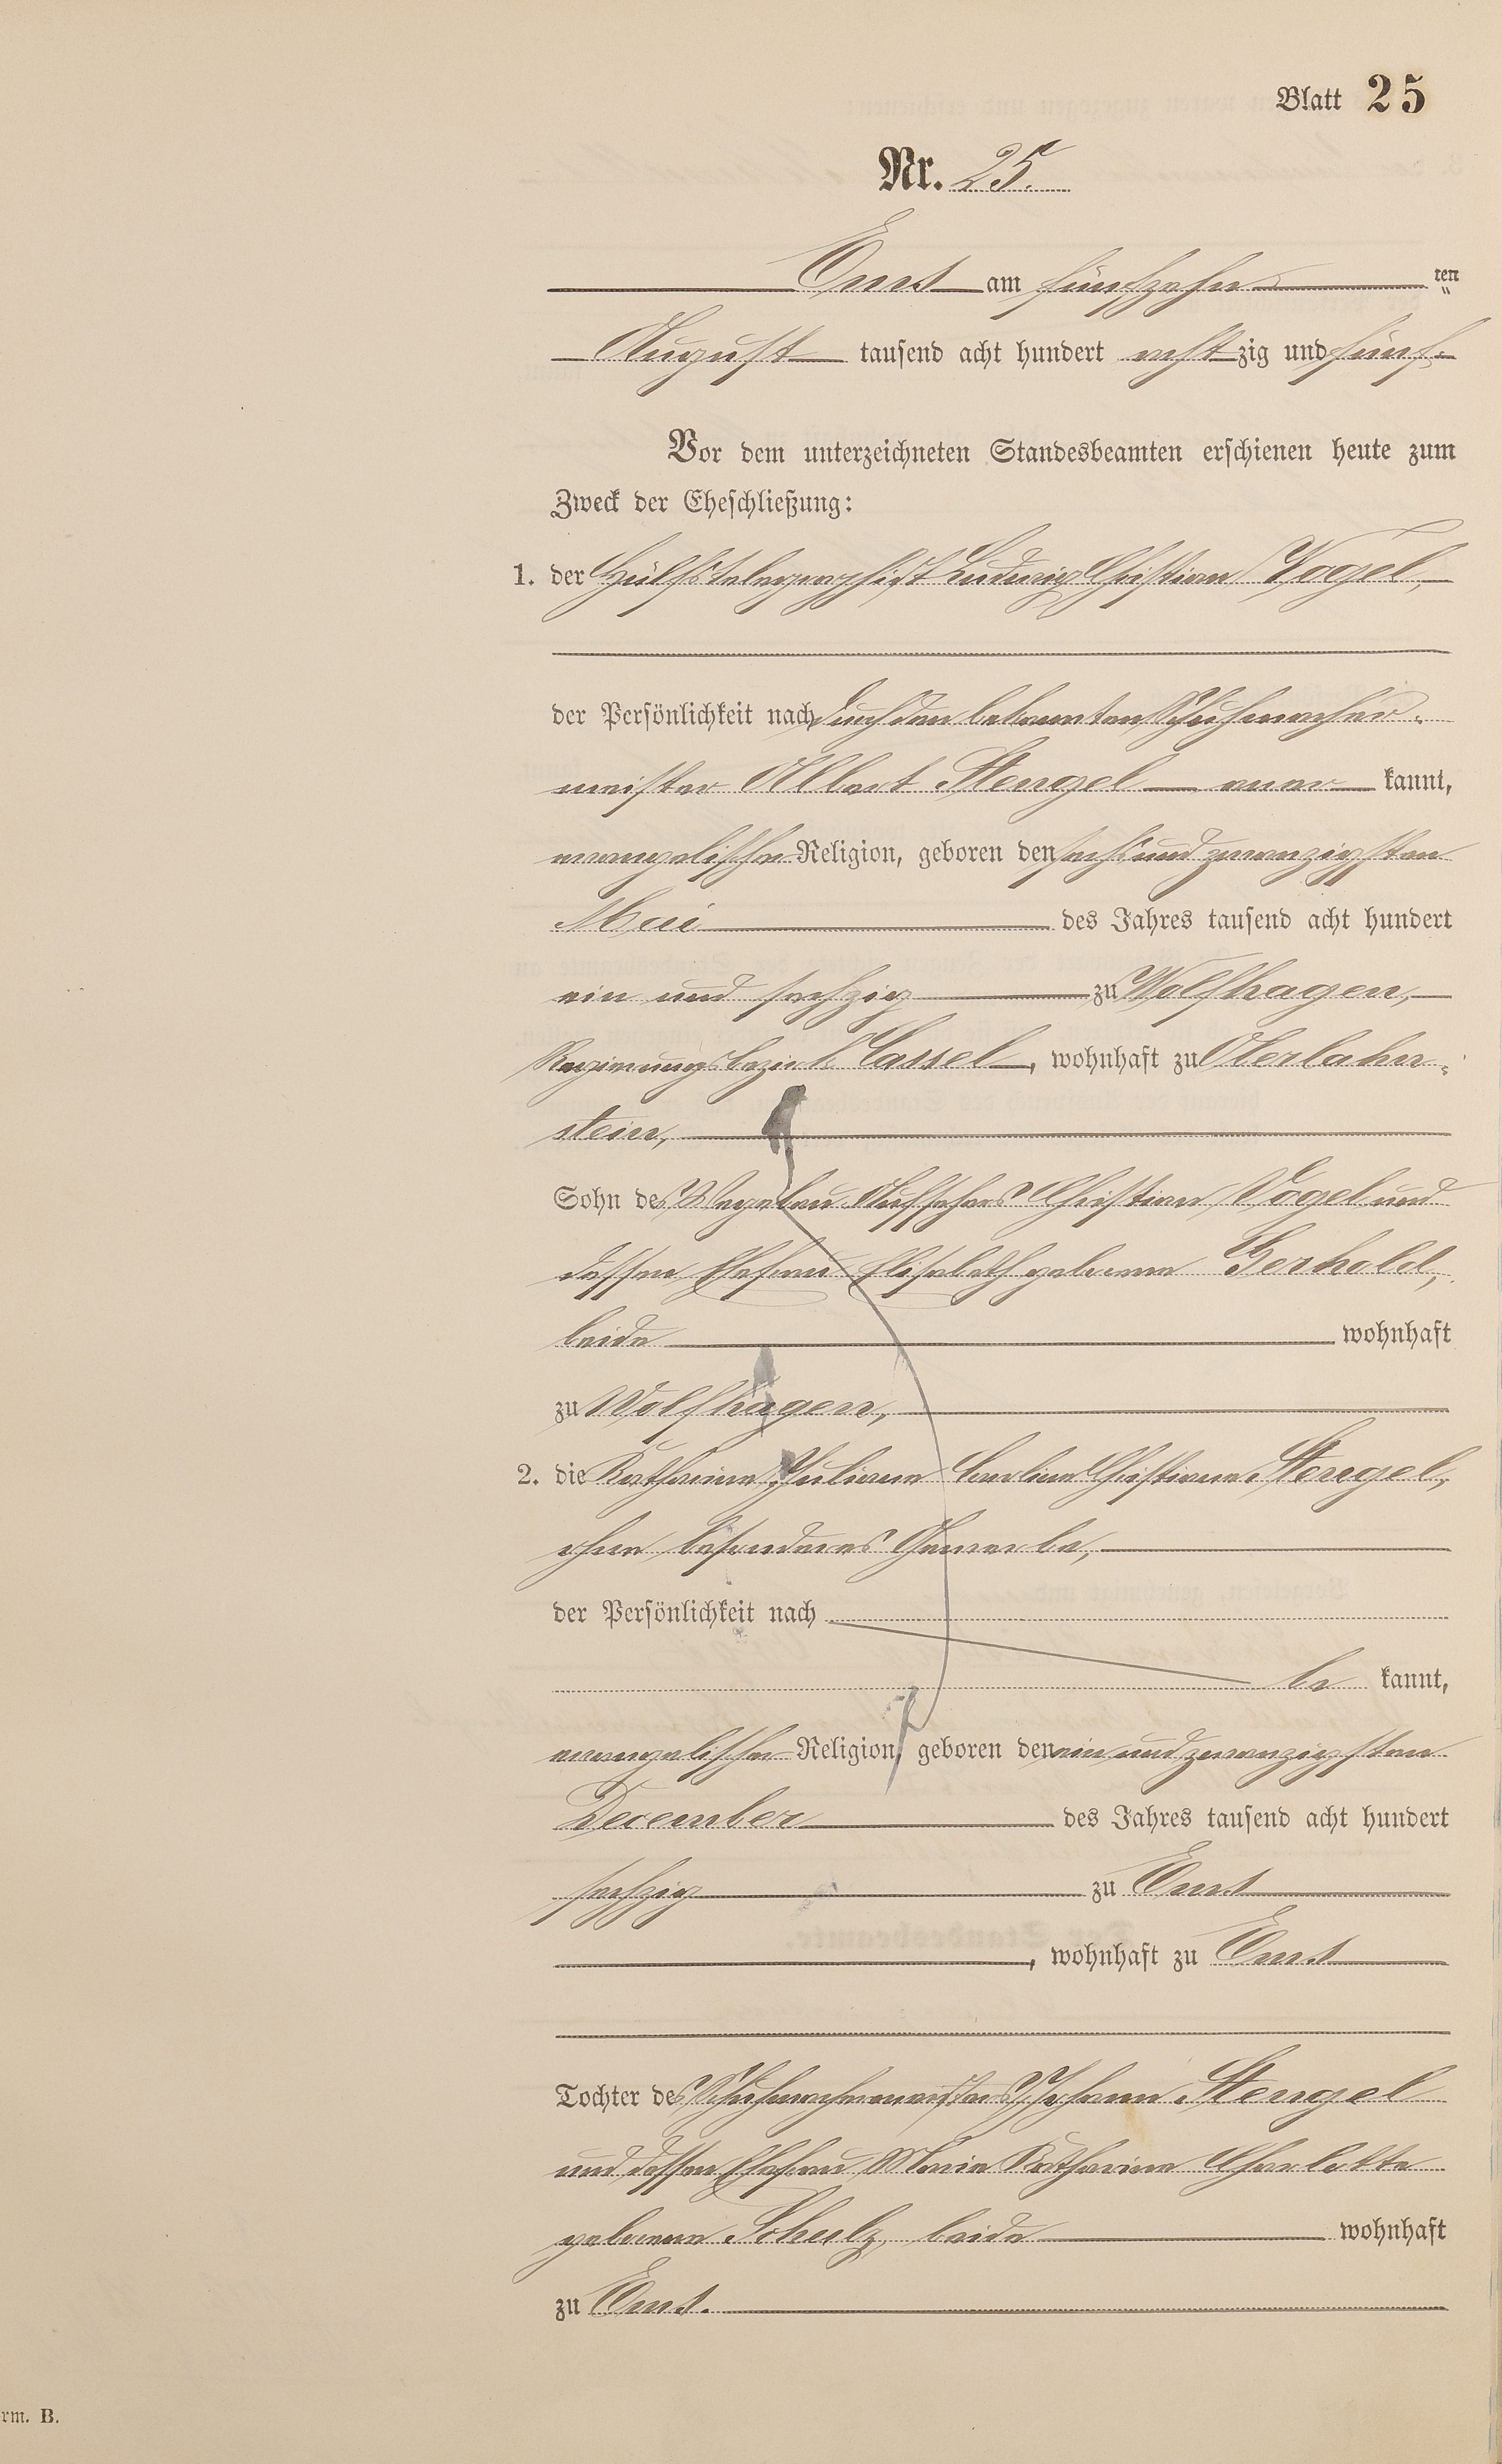 Blatt 25
Nr. 25.
Ems am fünfzehn ten
August tausend acht hundert achtzig und fünf.
Vor dem unterzeichneten Standesbeamten erschienen heute zum
Zweck der Eheschließung:
1. der Hülfstelegraphist Ludwig Christian Vogel,
der Persönlichkeit nach durch den bekannten Schuhmacher-
meister Albert Stengel anerkannt,
evangelischer Religion, geboren den sechsundzwanzigsten
Mai des Jahres tausend acht hundert
ein und sechzig zu Wolfhagen,
Regierungsbezirk Cassel, wohnhaft zu Oberlahn-
stein,
Sohn des Wegebau-Aufsehers Christian Vogel und
dessen Ehefrau Elisabeth geborene Gerhold,
beide wohnhaft
zu Wolfhagen,
2. die Katharine Juliane Caroline Christiane Stengel,
ohne besonderes Gewerbe,
der Persönlichkeit nach
be kannt,
evangelischer Religion, geboren den ein und zwanzigsten
December des Jahres tausend acht hundert
sechzig zu Ems
, wohnhaft zu Ems
Tochter des Schuhmachermeisters Johann Stengel
und dessen Ehefrau Marie Katharine Charlotte
geborene Schulz, beide wohnhaft
zu Ems.
rm. B.